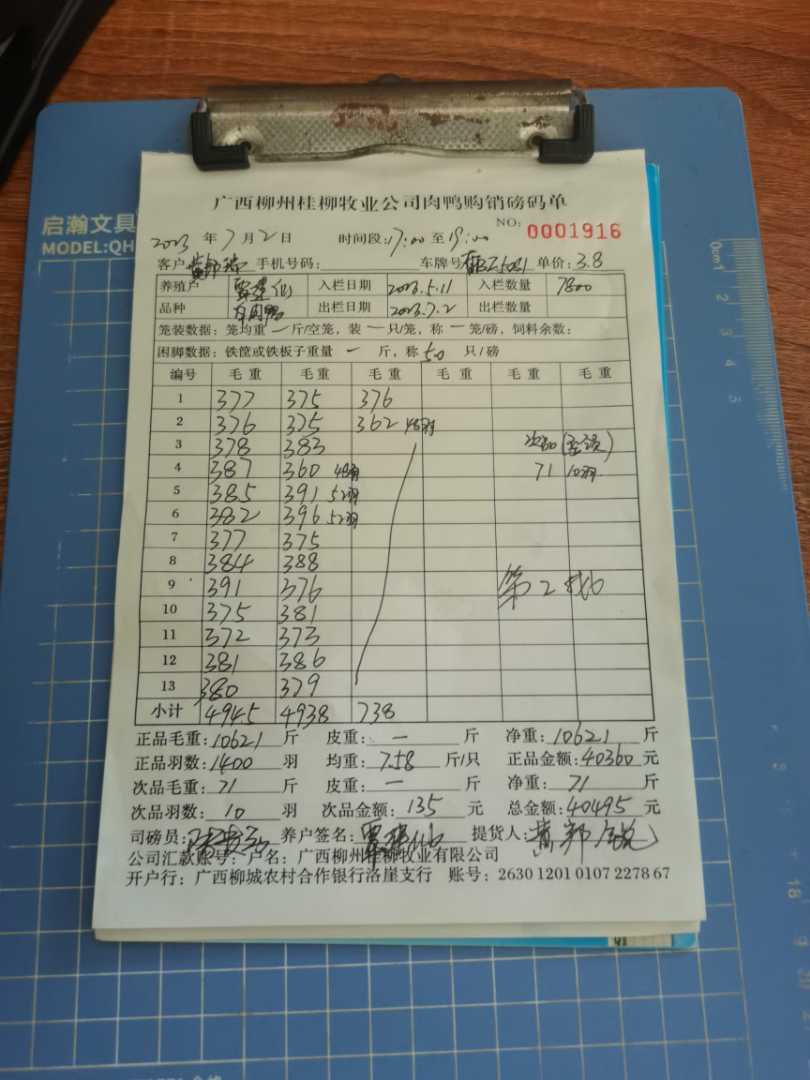 启瀚文具
MODEL:QH
广西柳州桂柳牧业公司肉鸭购销磅码单
NO: 0001916
2023 年 7 月 2 日 时间段: 17:00 至 19:00
客户 手机号码: 车牌号 单价: 3.8
养殖户 入栏日期 2023.5.11 入栏数量 7800
品种 出栏日期 2023.7.2 出栏数量
笼装数据: 笼均重 一 斤/空笼, 装 一 只/笼, 称 一 笼/磅, 饲料余数:
困脚数据: 铁筐或铁板子重量 一 斤, 称 50 只/磅
编号 毛重 毛重 毛重 毛重 毛重 毛重
1 377 375 376
2 376 375 362 48羽
3 378 383 次品
4 387 360 48羽 71 10羽
5 385 391 52羽
6 382 396 52羽
7 377 375
8 384 388
9 391 376 第2
10 375 381
11 372 373
12 381 386
13 380 379
小计 4945 4938 738
正品毛重: 10621 斤 皮重: 一 斤 净重: 10621 斤
正品羽数: 1400 羽 均重: 7.58 斤/只 正品金额: 40360 元
次品毛重: 71 斤 皮重: 一 斤 净重: 71 斤
次品羽数: 10 羽 次品金额: 135 元 总金额: 40495 元
司磅员: 养户签名: 提货人:
公司汇款账号: 户名: 广西柳州桂柳牧业有限公司
开户行: 广西柳城农村合作银行洛崖支行 账号: 2630 1201 0107 2278 67